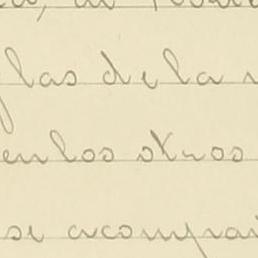 las de la
en los otros
se acompañ